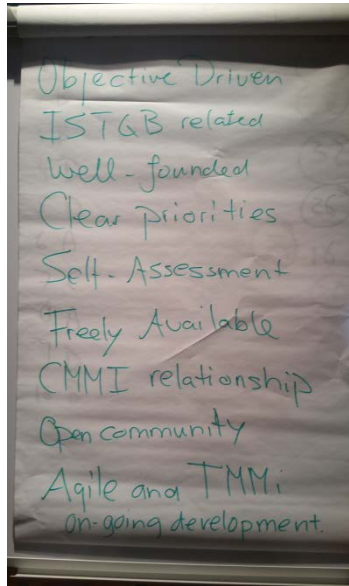 Objective Driven
ISTQB related
Well-founded
Clear priorities
Self-Assessment
Freely Available
CMMI relationship
Open community
Agile and TMMi
on-going development.